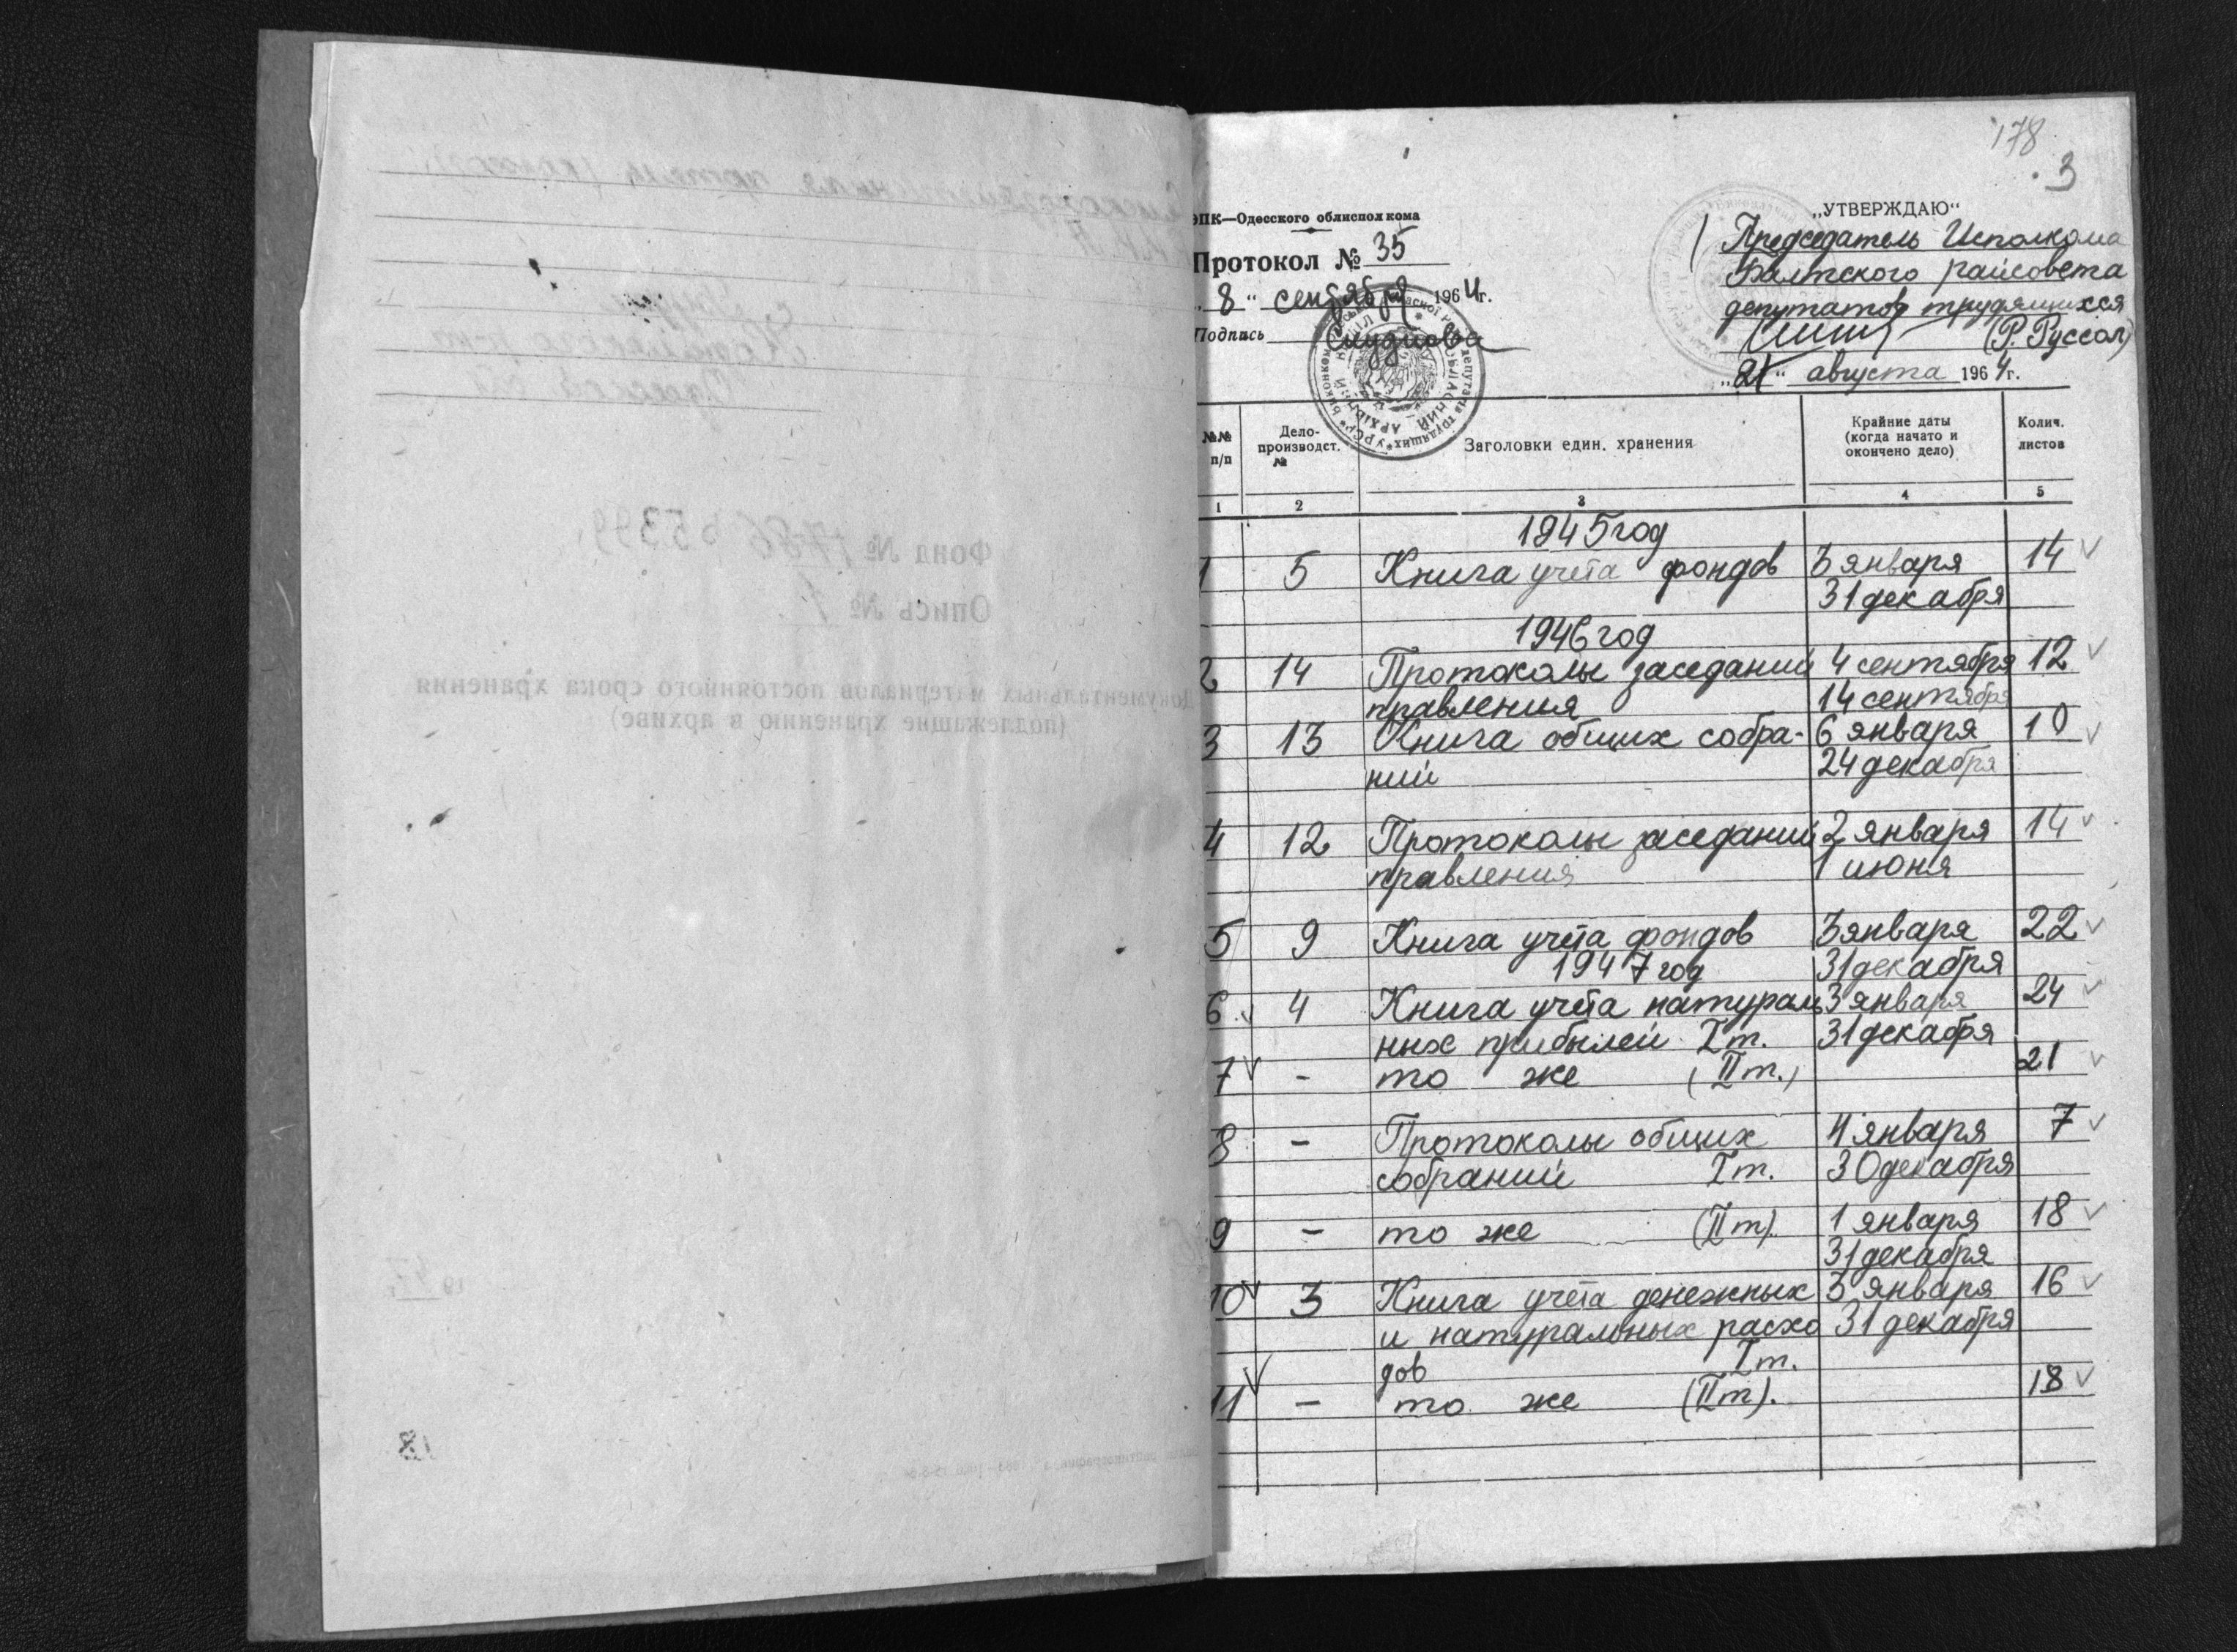 178
3
ЭПК—Одесского облисполкома
Протокол № 35
„8“ сентября 1964г.
Подпись
„УТВЕРЖДАЮ“
Председатель Исполкома
Балтского райсовета
депутатов трудящихся
(Р. Руссол)
„21“ августа 1964г.
№№ п/п
Дело-производст. №
Заголовки един. хранения
Крайние даты (когда начато и окончено дело)
Колич. листов
1 2 3 4 5
1945 год
1 5 Книга учета фондов 3 января 14
31 декабря
1946 год
2 14 Протоколы заседаний 4 сентября 12
правления 14 сентября
3 13 Книга общих собра- 6 января 10
ний 24 декабря
4 12 Протоколы заседаний 2 января 14
правления 1 июня
5 9 Книга учёта фондов 3 января 22
1947 год 31 декабря
6 4 Книга учёта натураль 3 января 24
ных прибылей I т. 31 декабря
7 - то же (II т.) 21
8 - Протоколы общих 4 января 7
собраний I т. 30 декабря
9 - то же (II т). 1 января 18
31 декабря
10 3 Книга учёта денежных 3 января 16
и натуральных расхо 31 декабря
дов I т.
11 - то же (II т). 18
Фонд № 5399
Опись № 1
Документальных материалов постоянного срока хранения
(подлежащие хранению в архиве)